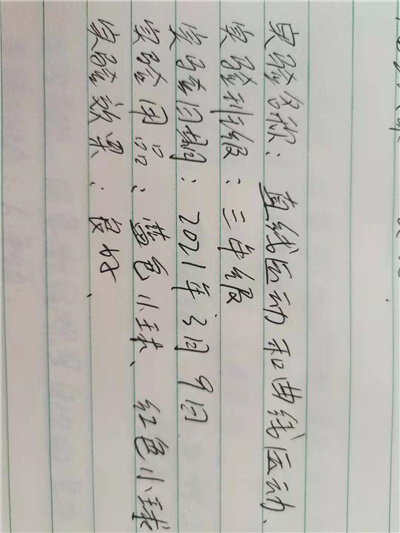 实验名称：直线运动和曲线运动、
实验班级：三年级
实验日期：2021年3月9日
实验用品：蓝色小球、红色小球
实验效果：良好、